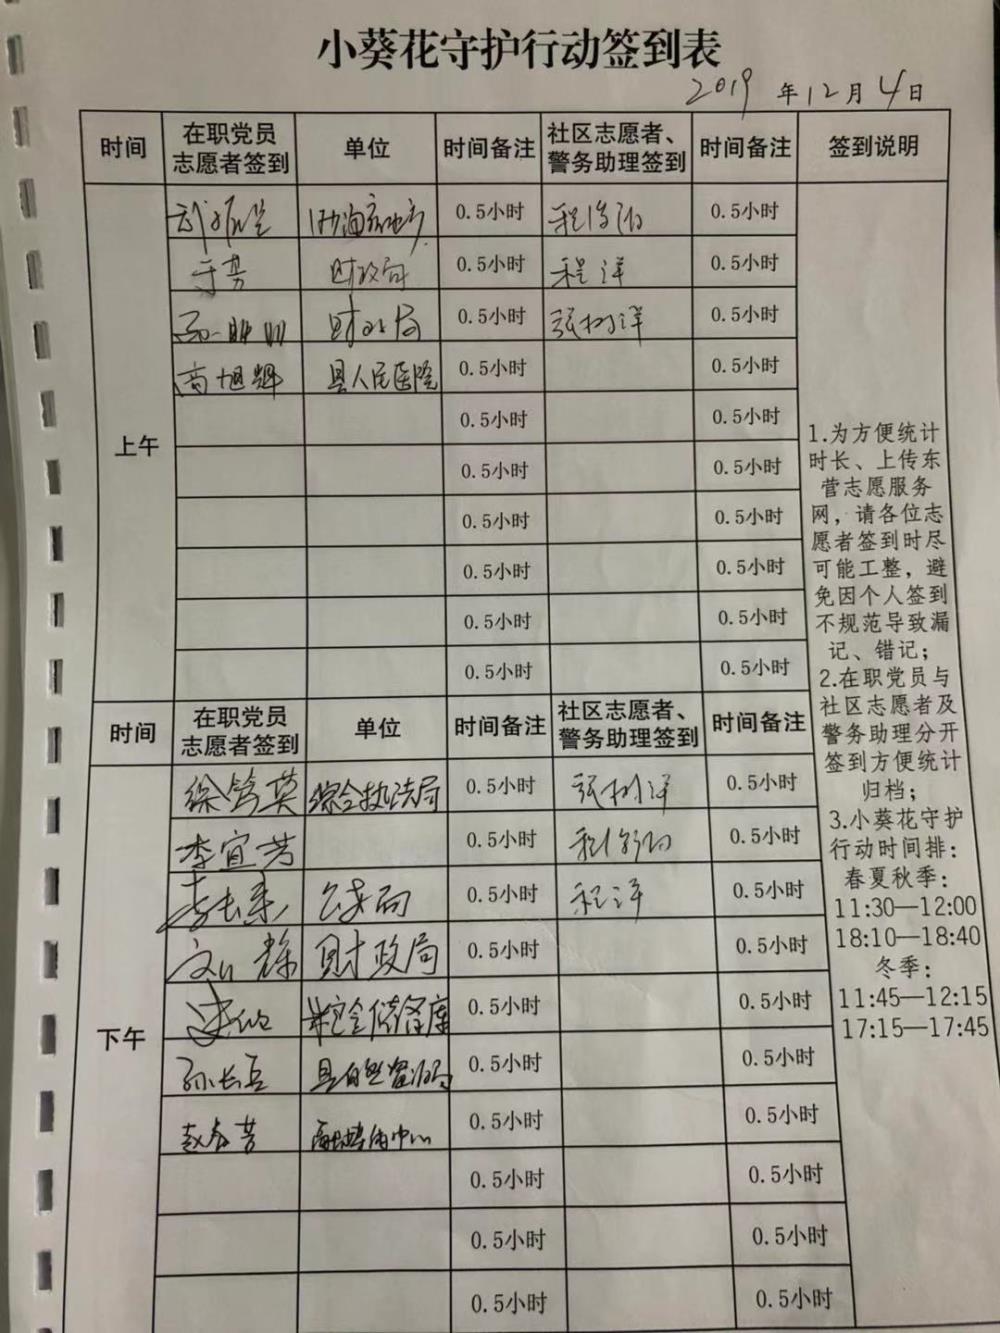 小葵花守护行动签到表
2019 年12月4日
时间 在职党员志愿者签到 单位 时间备注 社区志愿者、警务助理签到 时间备注 签到说明
上午
0.5小时 0.5小时
于芳 财政局 0.5小时 程洋 0.5小时
财政局 0.5小时 张树洋 0.5小时
高旭辉 县人民医院 0.5小时 0.5小时
0.5小时 0.5小时
0.5小时 0.5小时
0.5小时 0.5小时
0.5小时 0.5小时
0.5小时 0.5小时
0.5小时 0.5小时
时间 在职党员志愿者签到 单位 时间备注 社区志愿者、警务助理签到 时间备注
下午
综合执法局 0.5小时 张树洋 0.5小时
李宜芳 0.5小时 0.5小时
0.5小时 程洋 0.5小时
财政局 0.5小时 0.5小时
0.5小时 0.5小时
孙长兵 0.5小时 0.5小时
赵春芳 0.5小时 0.5小时
0.5小时 0.5小时
0.5小时 0.5小时
0.5小时 0.5小时
1.为方便统计
时长、上传东
营志愿服务
网，请各位志
愿者签到时尽
可能工整，避
免因个人签到
不规范导致漏
记、错记；
2.在职党员与
社区志愿者及
警务助理分开
签到方便统计
归档；
3.小葵花守护
行动时间排：
春夏秋季：
11:30—12:00
18:10—18:40
冬季：
11:45—12:15
17:15—17:45